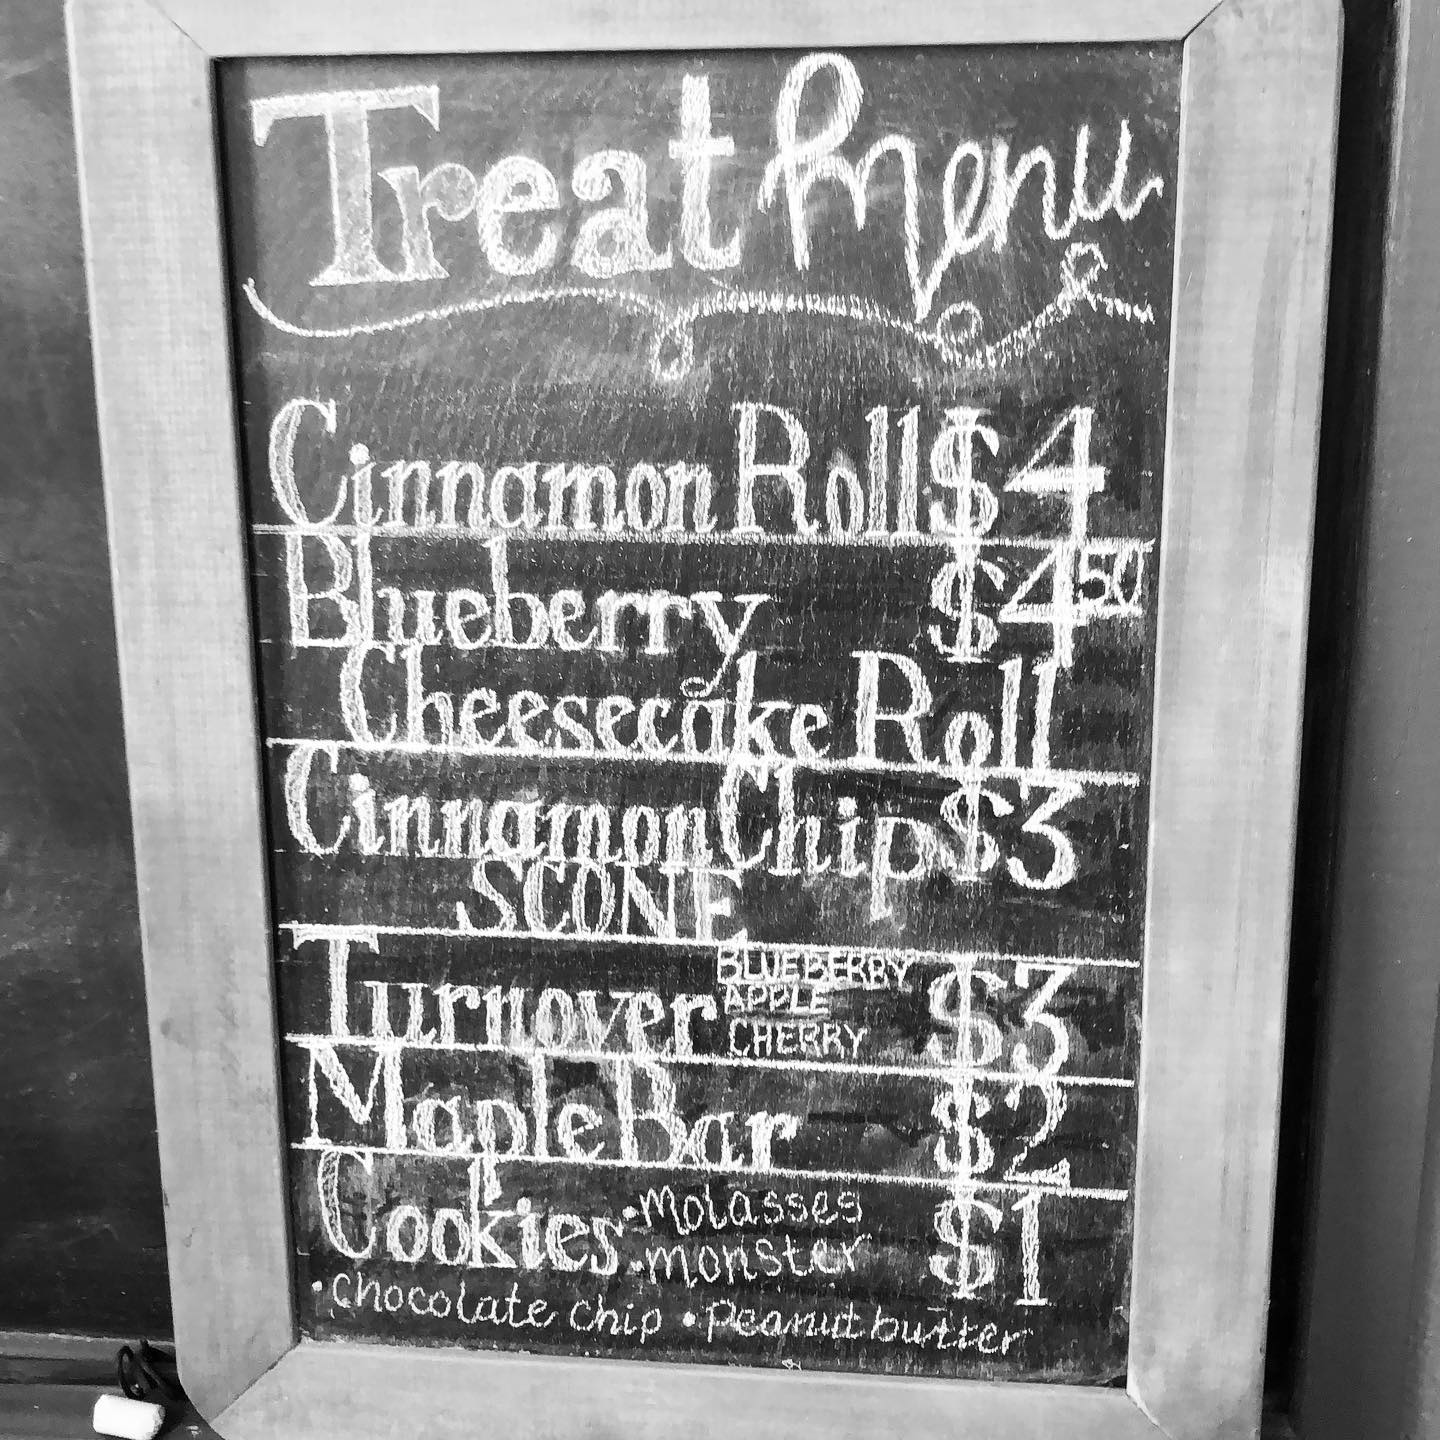 Treat Menu
Cinnamon Roll $4
Blueberry $4 50
Cheesecake Roll
Cinnamon Chip $3
SCONE
Turnover BLUEBERRY $3
APPLE
CHERRY
Maple Bar $2
Cookies • molasses $1
• monster
• chocolate chip • Peanut butter